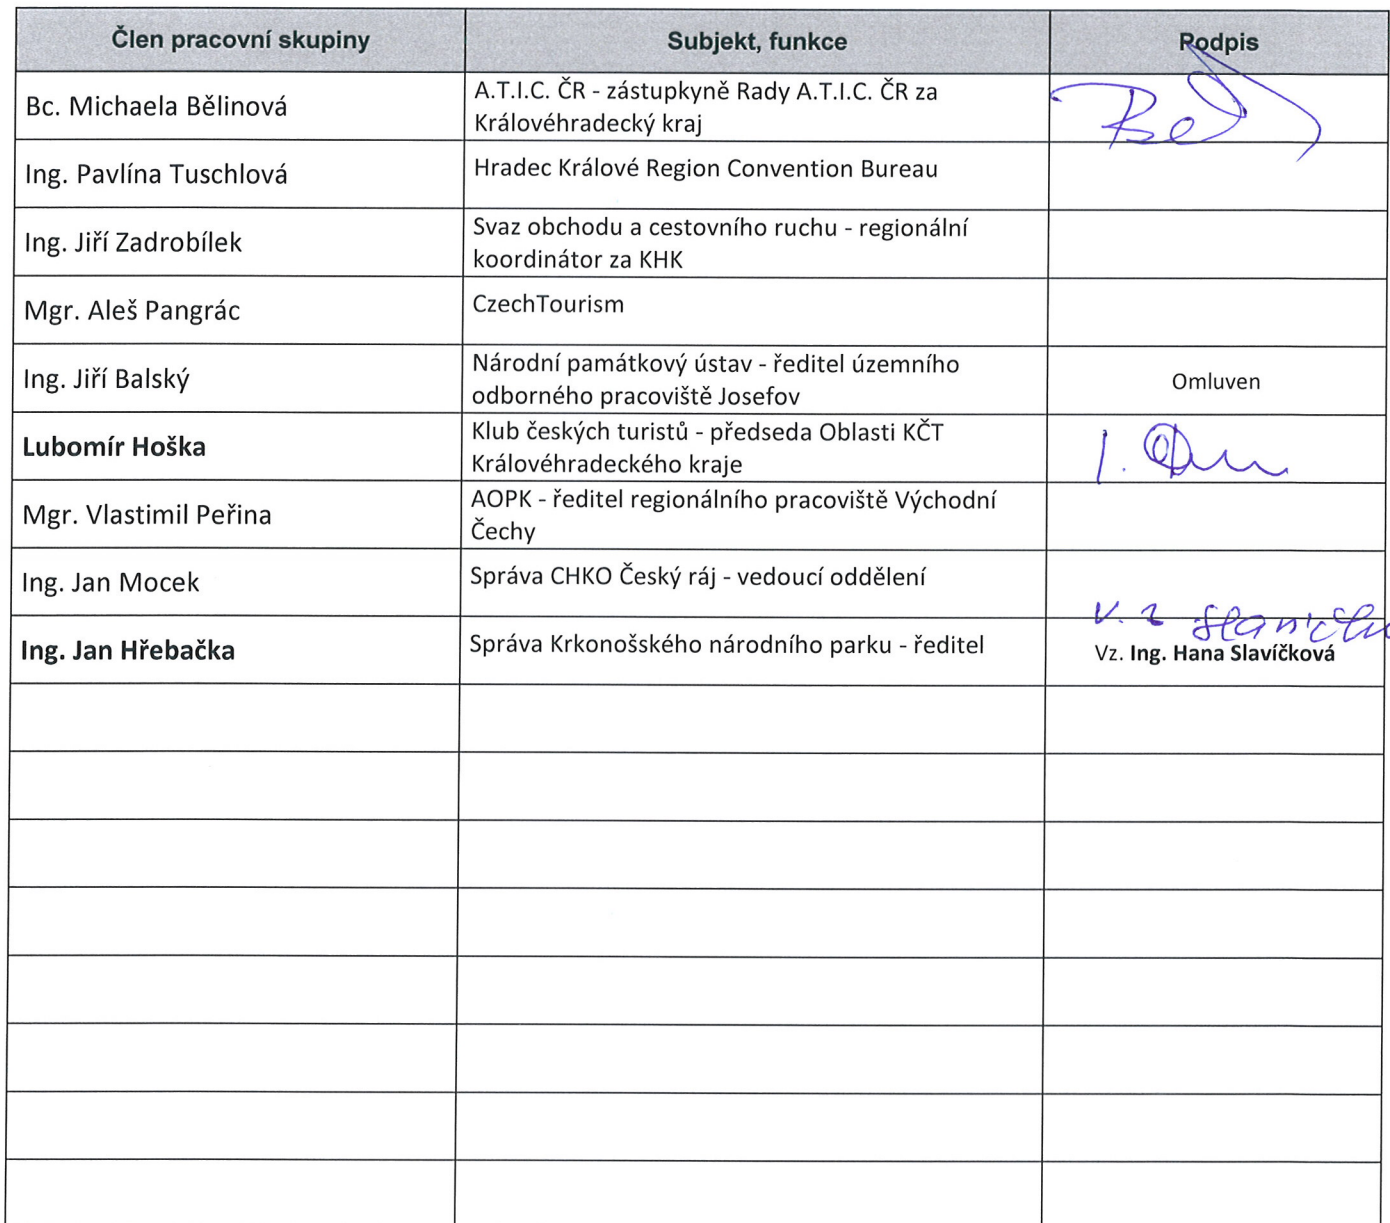 Člen pracovní skupiny Subjekt, funkce Podpis
Bc. Michaela Bělinová
A.T.I.C. ČR - zástupkyně Rady A.T.I.C. ČR za
Královéhradecký kraj
Ing. Pavlína Tuschlová
Hradec Králové Region Convention Bureau
Ing. Jiří Zadrobílek
Svaz obchodu a cestovního ruchu - regionální
koordinátor za KHK
Mgr. Aleš Pangrác
CzechTourism
Ing. Jiří Balský
Národní památkový ústav - ředitel územního
odborného pracoviště Josefov
Omluven
Lubomír Hoška
Klub českých turistů - předseda Oblasti KČT
Královéhradeckého kraje
Mgr. Vlastimil Peřina
AOPK - ředitel regionálního pracoviště Východní
Čechy
Ing. Jan Mocek
Správa CHKO Český ráj - vedoucí oddělení
Ing. Jan Hřebačka
Správa Krkonošského národního parku - ředitel
v. z
Vz. Ing. Hana Slavíčková